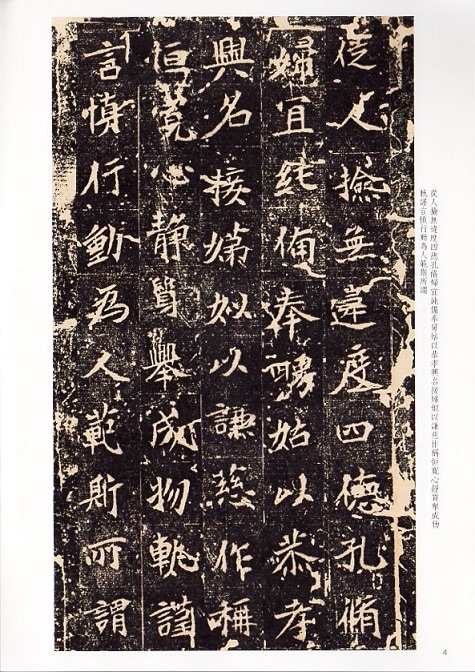 從人撿無違度四德孔脩
婦宜純備奉舅姑以恭孝
興名接娣姒以謙慈作稱
恒寬心靜質舉成物軌謹
言慎行動為人範斯所謂
從人撿無違度四德孔脩婦宜純備奉舅姑以恭孝興名接娣姒以謙慈作稱恒寬心靜質舉成物
軌謹言慎行動為人範斯所謂
4